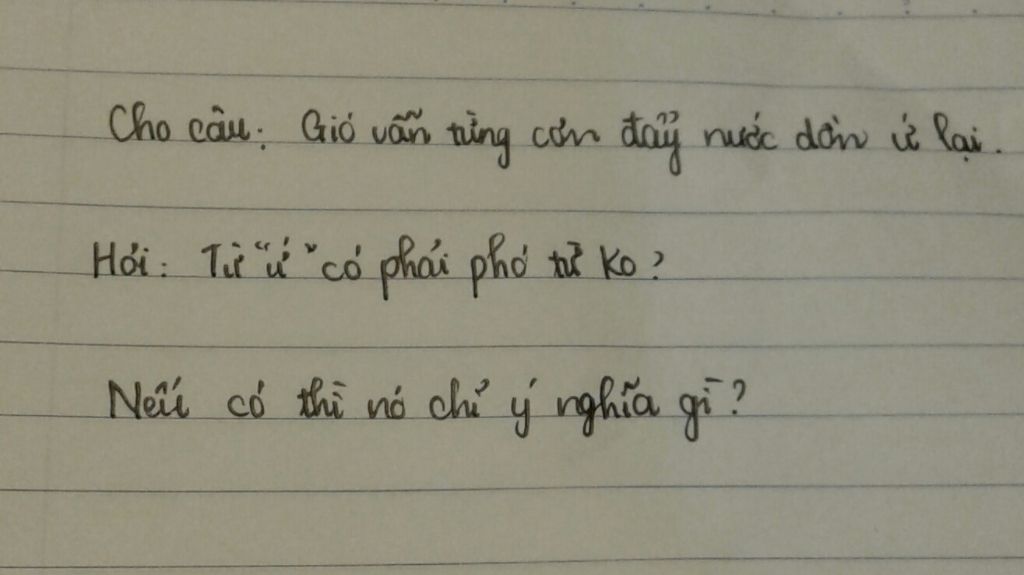 Cho câu: Gió vẫn từng cơn đẩy nước dồn ứ lại.
Hỏi: Từ "ứ" có phải phó từ ko?
Nếu có thì nó chỉ ý nghĩa gì?